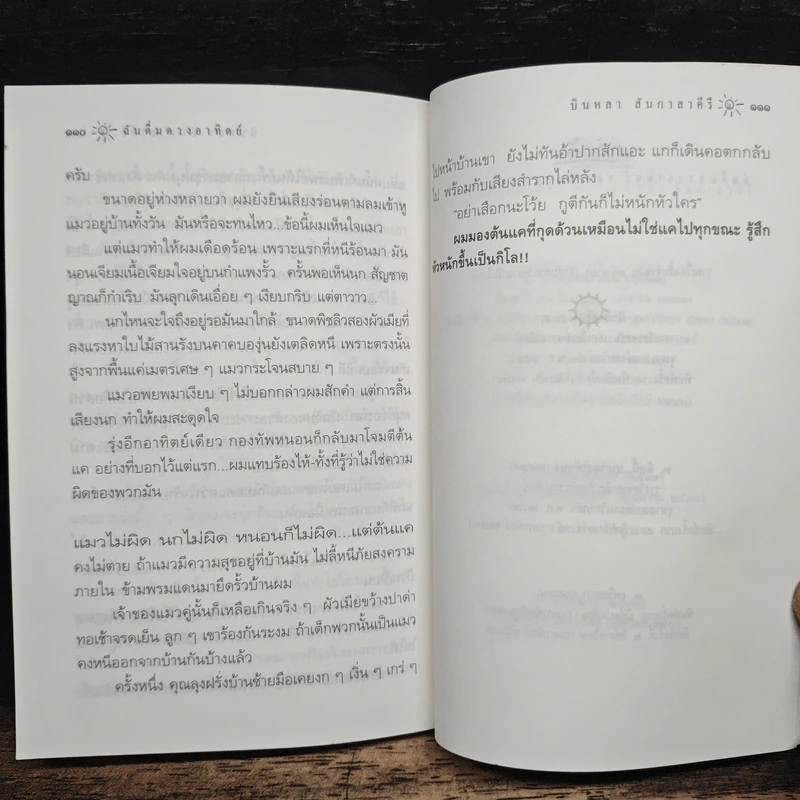 ๑๑๐ ฉันดื่มดวงอาทิตย์
ครับ
ขนาดอยู่ห่างหลายวา ผมยังยินเสียงร่อนตามลมเข้าหู
แมวอยู่บ้านทั้งวัน มันหรือจะทนไหว...ข้อนี้ผมเห็นใจแมว
แต่แมวทำให้ผมเดือดร้อน เพราะแรกที่หนีร้อนมา มัน
นอนเจียมเนื้อเจียมใจอยู่บนกำแพงรั้ว ครั้นพอเห็นนก สัญชาต
ญาณก็กำเริบ มันลุกเดินเอื่อย ๆ เงียบกริบ แต่ตาวาว...
นกไหนจะใจถึงอยู่รอมันมาใกล้ ขนาดพิชลิวสองผัวเมียที่
ลงแรงหาใบไม้สานรังบนคาคบองุ่นยังเตลิดหนี เพราะตรงนั้น
สูงจากพื้นแค่เมตรเศษ ๆ แมวกระโจนสบาย ๆ
แมวอพยพมาเงียบ ๆ ไม่บอกกล่าวผมสักคำ แต่การสิ้น
เสียงนก ทำให้ผมสะดุดใจ
รุ่งอีกอาทิตย์เดียว กองทัพหนอนก็กลับมาโจมตีต้น
แค อย่างที่บอกไว้แต่แรก...ผมแทบร้องไห้-ทั้งที่รู้ว่าไม่ใช่ความ
ผิดของพวกมัน
แมวไม่ผิด นกไม่ผิด หนอนก็ไม่ผิด...แต่ต้นแค
คงไม่ตาย ถ้าแมวมีความสุขอยู่ที่บ้านมัน ไม่ลี้หนีภัยสงคราม
ภายใน ข้ามพรมแดนมายึดรั้วบ้านผม
เจ้าของแมวคู่นั้นก็เหลือเกินจริง ๆ ผัวเมียขว้างปาด่า
ทอเช้าจรดเย็น ลูก ๆ เขาร้องกันระงม ถ้าเด็กพวกนั้นเป็นแมว
คงหนีออกจากบ้านกันบ้างแล้ว
ครั้งหนึ่ง คุณลุงฝรั่งบ้านซ้ายมือเคยงก ๆ เงิ่น ๆ เกร่ ๆ
บินหลา สันกาลาคีรี ๑๑๑
ไปหน้าบ้านเขา ยังไม่ทันอ้าปากสักแอะ แกก็เดินคอตกกลับ
ไป พร้อมกับเสียงสำรากไล่หลัง
"อย่าเสือกนะโว้ย กูตีกันก็ไม่หนักหัวใคร"
ผมมองต้นแคที่กุดด้วนเหมือนไม่ใช่แคไปทุกขณะ รู้สึก
หัวหนักขึ้นเป็นกิโล!!